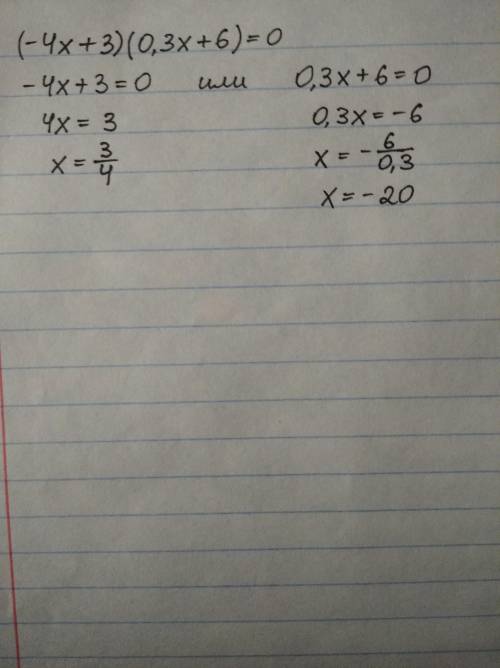 (-4x+3)(0,3x+6)=0
-4x+3=0 или 0,3x+6=0
4x = 3 0,3x=-6
x = 3/4 x = - 6/0,3
x = -20